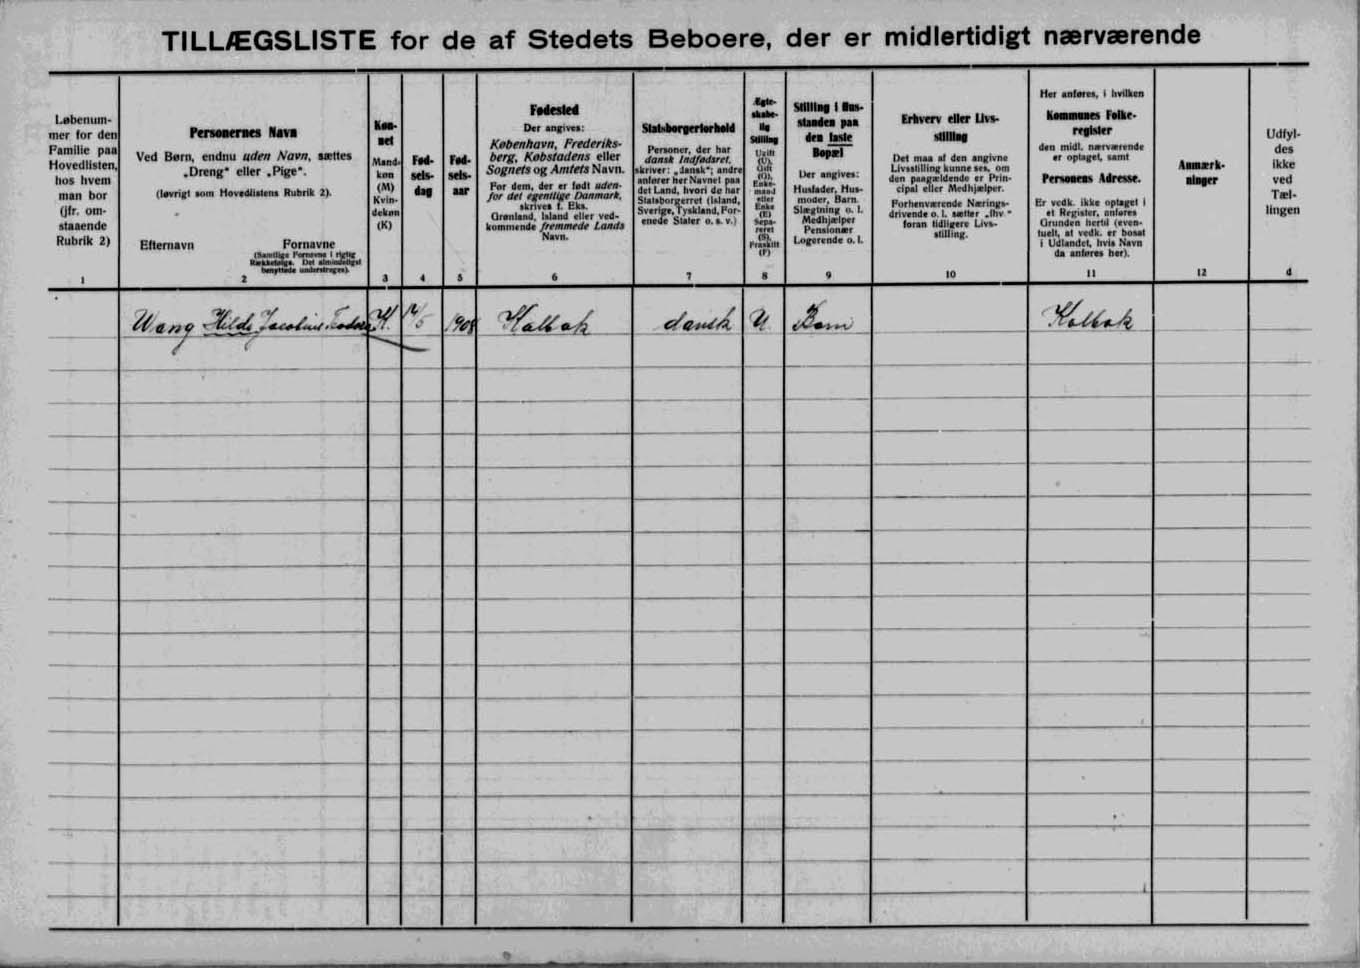 TILLÆGSLISTE for de af Stedets Beboere, der er midlertidigt nærværende
Løbenum-
mer for den
Familie paa
Hovedlisten,
hos hvem
man bor
(jfr. om-
staaende
Rubrik 2)
1
Personernes Navn
Ved Børn, endnu uden Navn, sættes
„Dreng“ eller „Pige“.
(Iøvrigt som Hovedlistens Rubrik 2).
Efternavn
Fornavne
(Samtlige Fornavne i rigtig
Rækkefølge. Det almindeligst
benyttede understreges).
2
Køn-
net
Mand-
køn
(M)
Kvin-
dekøn
(K)
3
Fød-
sels-
dag
4
Fød-
sels-
aar
5
Fødested
Der angives:
København, Frederiks-
berg, Købstadens eller
Sognets og Amtets Navn.
For dem, der er født uden-
for det egentlige Danmark,
skrives f. Eks.
Grønland, Island eller ved-
kommende fremmede Lands
Navn.
6
Statsborgerforhold
Personer, der har
dansk Indfødsret,
skriver: „dansk“; andre
anfører her Navnet paa
det Land, hvori de har
Statsborgerret (Island,
Sverige, Tyskland, For-
enede Stater o. s. v.)
7
Ægte-
skabe-
lig
Stilling
Ugift
(U),
Gift
(G),
Enke-
mand
eller
Enke
(E)
Sepa-
reret
(S),
Fraskilt
(F)
8
Stilling i Hus-
standen paa
den faste
Bopæl
Der angives:
Husfader, Hus-
moder, Barn,
Slægtning o. l.
Medhjælper
Pensionær
Logerende o. l.
9
Erhverv eller Livs-
stilling
Det maa af den angivne
Livsstilling kunne ses, om
den paagældende er Prin-
cipal eller Medhjælper.
Forhenværende Nærings-
drivende o. l. sætter „fhv.“
foran tidligere Livs-
stilling.
10
Her anføres, i hvilken
Kommunes Folke-
register
den midl. nærværende
er optaget, samt
Personens Adresse.
Er vedk. ikke optaget i
et Register, anføres
Grunden hertil (even-
tuelt, at vedk. er bosat
i Udlandet, hvis Navn
da anføres her).
11
Anmærk-
ninger
12
Udfyl-
des
ikke
ved
Tæl-
lingen
d
Wang Hilda Jacobine K. 1908 Kolbøk dansk U Barn Kolbøk